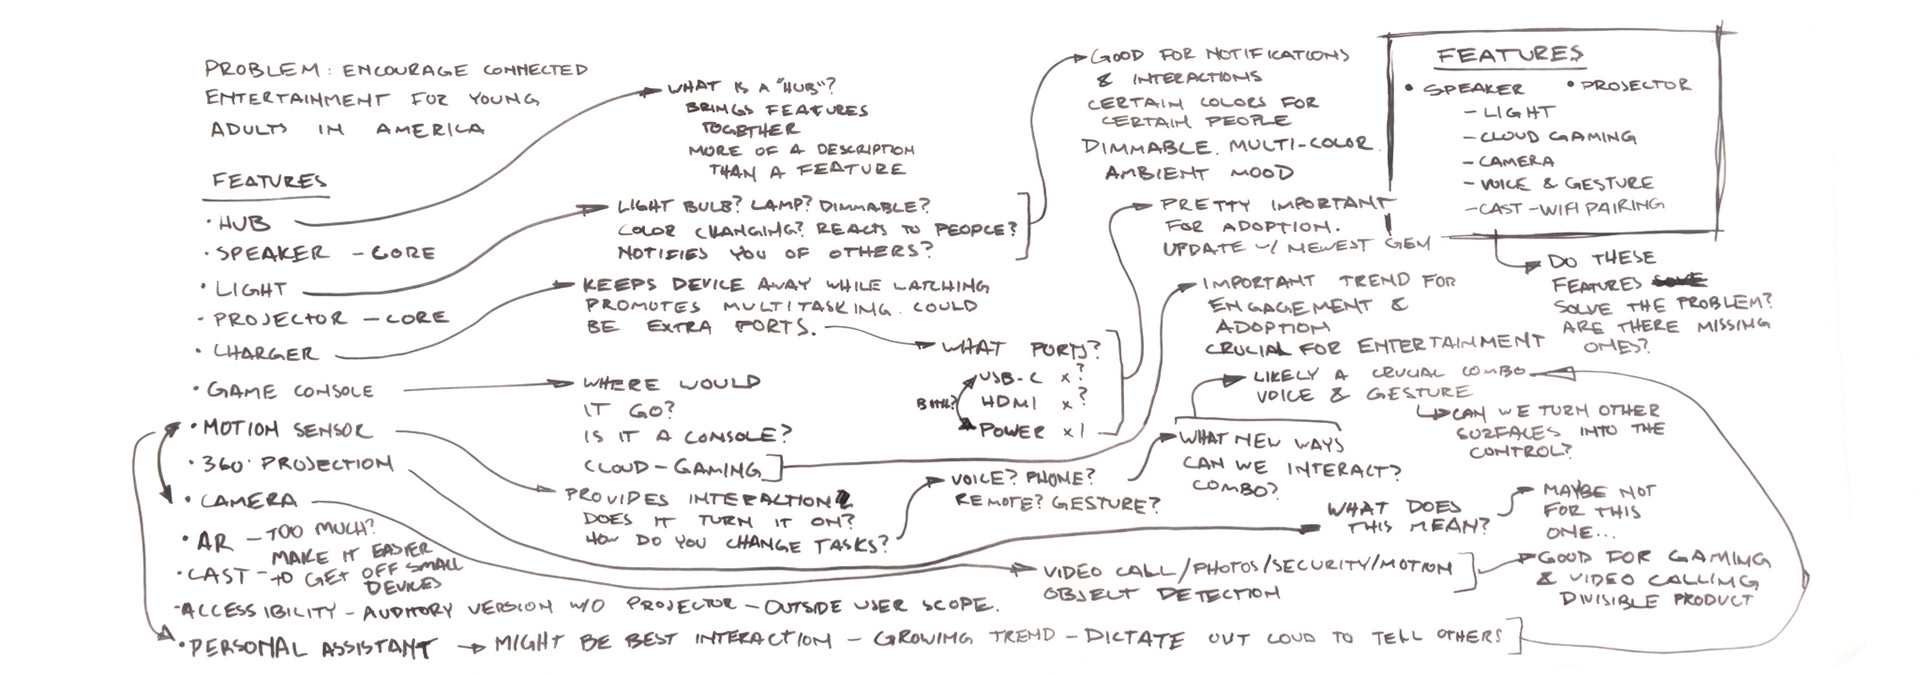 PROBLEM: ENCOURAGE CONNECTED
ENTERTAINMENT FOR YOUNG
ADULTS IN AMERICA
FEATURES
• HUB
• SPEAKER - CORE
• LIGHT
• PROJECTOR - CORE
• CHARGER
• GAME CONSOLE
• MOTION SENSOR
• 360° PROJECTION
• CAMERA
• AR - TOO MUCH?
• CAST - MAKE IT EASIER
TO GET OFF SMALL
DEVICES
• ACCESSIBILITY - AUDITORY VERSION W/O PROJECTOR - OUTSIDE USER SCOPE.
• PERSONAL ASSISTANT → MIGHT BE BEST INTERACTION - GROWING TREND - DICTATE OUT LOUD TO TELL OTHERS
WHAT IS A "HUB"?
BRINGS FEATURES
TOGETHER
MORE OF A DESCRIPTION
THAN A FEATURE
LIGHT BULB? LAMP? DIMMABLE?
COLOR CHANGING? REACTS TO PEOPLE?
NOTIFIES YOU OF OTHERS?
KEEPS DEVICE AWAY WHILE WATCHING
PROMOTES MULTITASKING. COULD
BE EXTRA PORTS.
WHERE WOULD
IT GO?
IS IT A CONSOLE?
CLOUD-GAMING
PROVIDES INTERACTION
DOES IT TURN IT ON?
HOW DO YOU CHANGE TASKS?
WHAT PORTS?
USB-C x?
HDMI x?
POWER x1
BOTH?
VOICE? PHONE?
REMOTE? GESTURE?
VIDEO CALL/PHOTOS/SECURITY/MOTION
OBJECT DETECTION
GOOD FOR NOTIFICATIONS
& INTERACTIONS
CERTAIN COLORS FOR
CERTAIN PEOPLE
DIMMABLE. MULTI-COLOR.
AMBIENT MOOD
PRETTY IMPORTANT
FOR ADOPTION.
UPDATE W/ NEWEST GEN
IMPORTANT TREND FOR
ENGAGEMENT &
ADOPTION
CRUCIAL FOR ENTERTAINMENT
LIKELY A CRUCIAL COMBO
VOICE & GESTURE
CAN WE TURN OTHER
SURFACES INTO THE
CONTROL?
WHAT NEW WAYS
CAN WE INTERACT?
COMBO?
WHAT DOES
THIS MEAN?
MAYBE NOT
FOR THIS
ONE...
GOOD FOR GAMING
& VIDEO CALLING
DIVISIBLE PRODUCT
FEATURES
• SPEAKER • PROJECTOR
- LIGHT
- CLOUD GAMING
- CAMERA
- VOICE & GESTURE
- CAST - WIFI PAIRING
DO THESE
FEATURES
SOLVE THE PROBLEM?
ARE THERE MISSING
ONES?